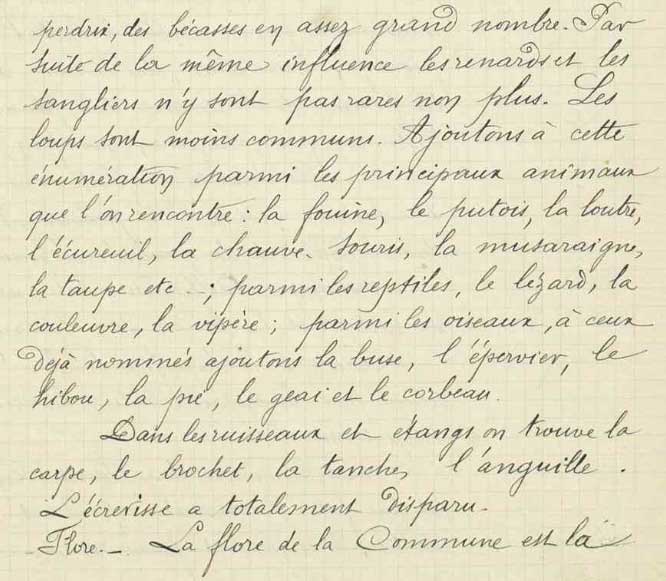 perdrix, des bécasses en assez grand nombre. Par
suite de la même influence les renards et les
sangliers n'y sont pas rares non plus. Les
loups sont moins communs. Ajoutons à cette
énumération parmi les principaux animaux
que l'on rencontre : la fouine, le putois, la loutre,
l'écureuil, la chauve-souris, la musaraigne,
la taupe etc... ; parmi les reptiles, le lézard, la
couleuvre, la vipère ; parmi les oiseaux, à ceux
déjà nommés ajoutons la buse, l'épervier, le
hibou, la pie, le geai et le corbeau.
Dans les ruisseaux et étangs on trouve la
carpe, le brochet, la tanche, l'anguille.
L'écrevisse a totalement disparu.
Flore. - La flore de la Commune est la